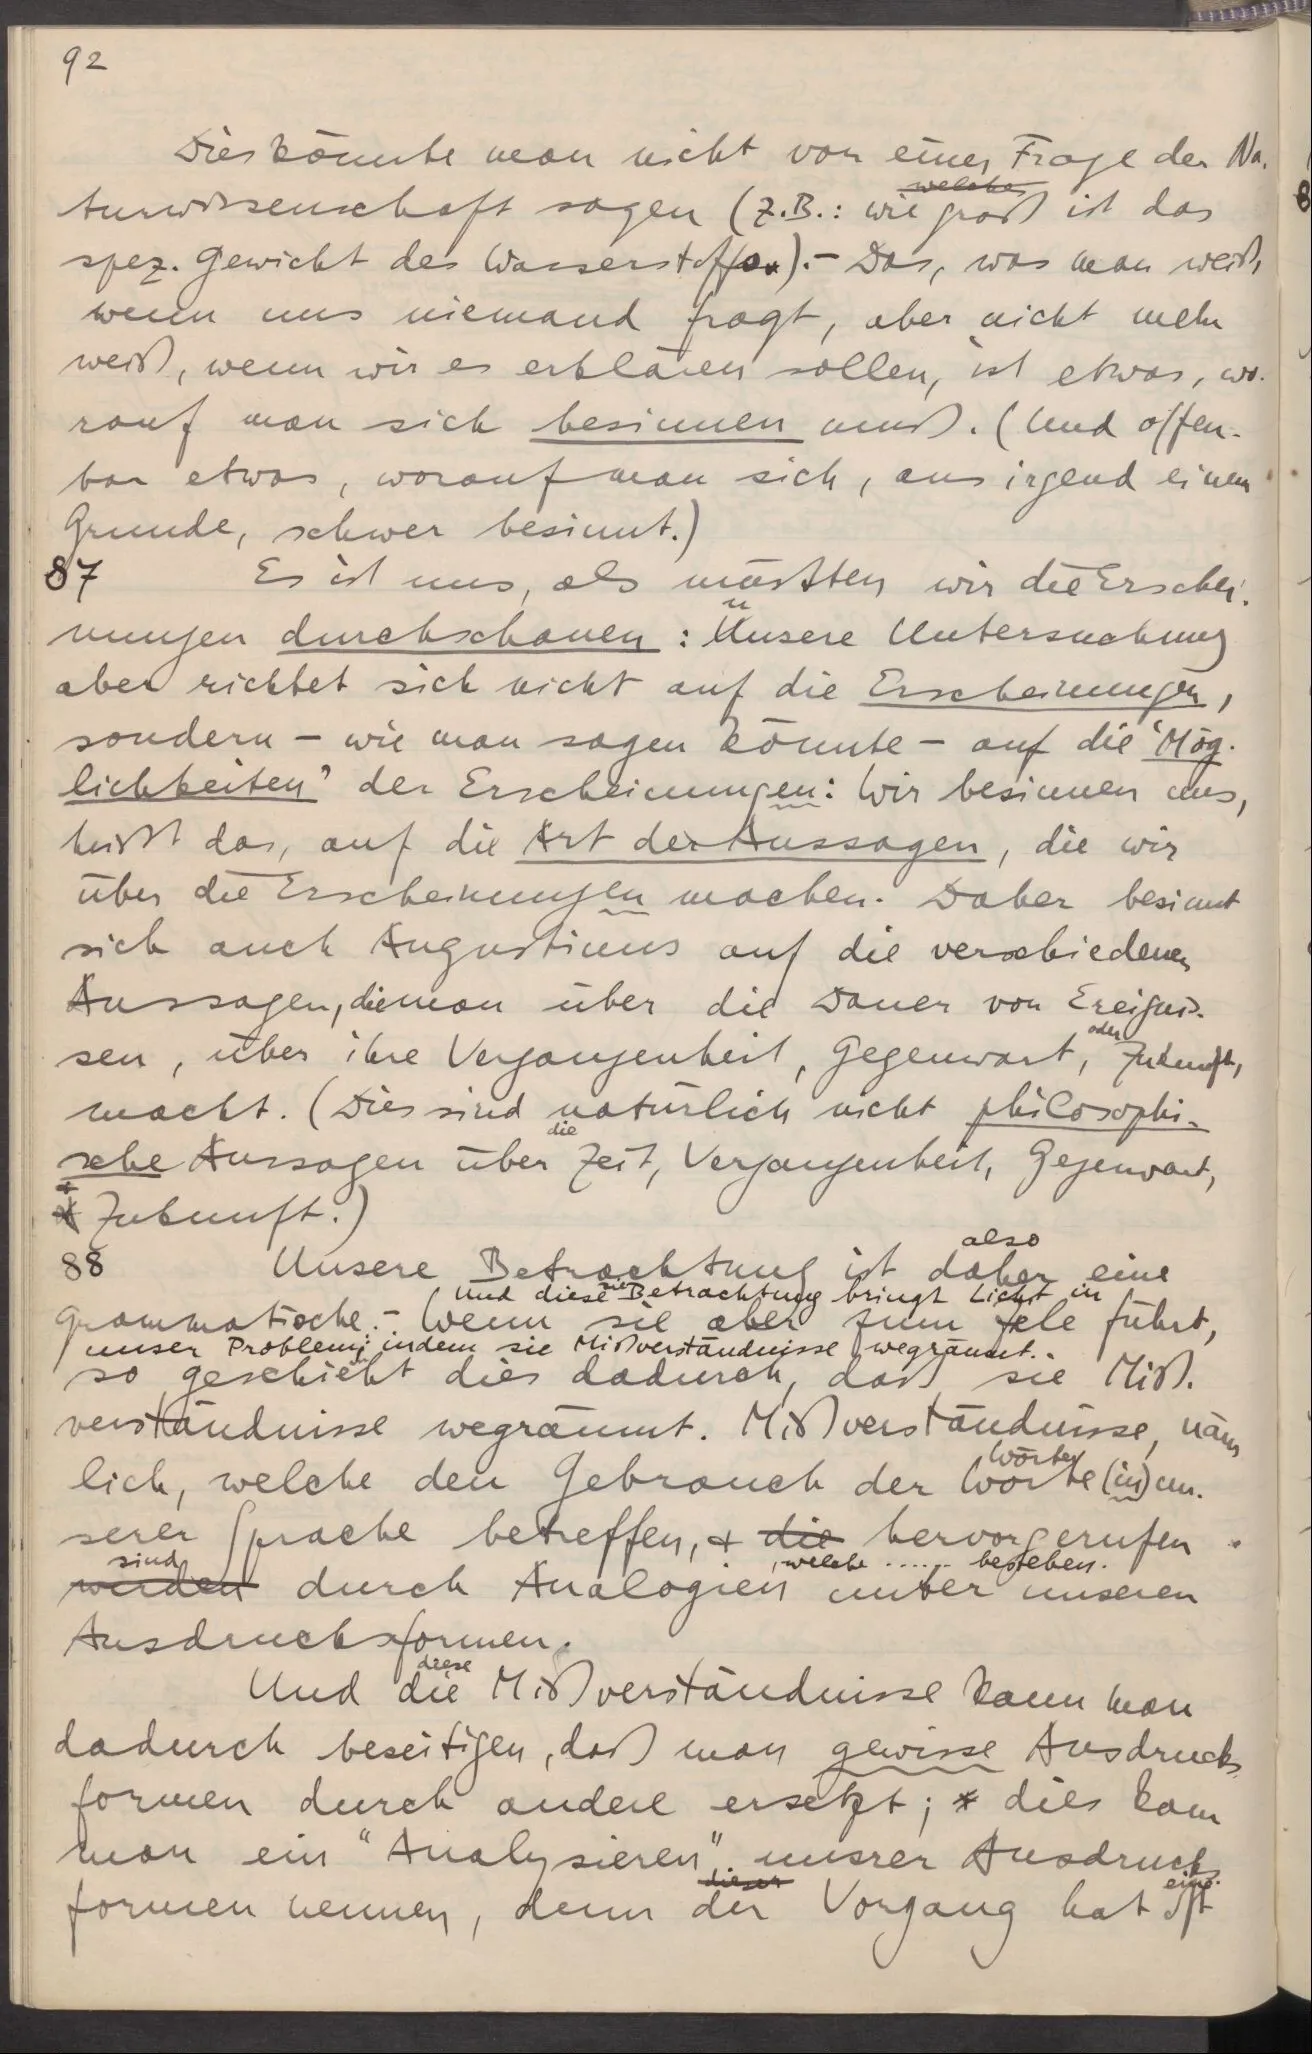 92
Dies könnte man nicht von einer Frage der Na-
welche
turwissenschaft sagen (z.B.: wie groß ist das
spez. Gewicht des Wasserstoffs).– Das, was man weiß,
wenn uns niemand fragt, aber nicht mehr
weiß, wenn wir es erklären sollen, ist etwas, wo-
rauf man sich besinnen muß. (Und offen-
bar etwas, worauf man sich, aus irgend einem
Grunde, schwer besinnt.)
87 Es ist uns, als müßten wir die Erschei-
u
nungen durchschauen: Unsere Untersuchung
aber richtet sich nicht auf die Erscheinungen,
sondern – wie man sagen könnte – auf die 'Mög-
lichkeiten' der Erscheinungen: Wir besinnen uns,
heißt das, auf die Art der Aussagen, die wir
über die Erscheinungen machen. Daher besinnt
sich auch Augustinus auf die verschiedenen
Aussagen, die man über die Dauer von Ereignis-
oder
sen, über ihre Vergangenheit, Gegenwart, Zukunft,
macht. (Dies sind natürlich nicht philosophi-
die
sche Aussagen über Zeit, Vergangenheit, Gegenwart,
+ Zukunft.)
also
88 Unsere Betrachtung ist daher eine
Und diese Betrachtung bringt Licht in
grammatische.– Wenn sie aber zum Ziele führt,
unser Problem, indem sie Mißverständnisse wegräumt.
so geschieht dies dadurch, daß sie Miß-
verständnisse wegräumt. Mißverständnisse, näm
Wörter
lich, welche den Gebrauch der Worte (in) un-
serer Sprache betreffen, + die hervorgerufen
sind , welche ...... bestehen.
werden durch Analogien unter unseren
Ausdrucksformen.
diese
Und die Mißverständnisse kann man
dadurch beseitigen, daß man gewisse Ausdrucks
formen durch andere ersetzt; dies kann
man ein "Analysieren" unsrer Ausdrucks
dieser eine
formen nennen, denn der Vorgang hat oft